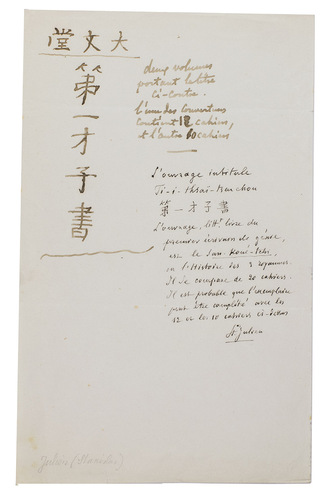 大文堂
第一才子書
deux volumes
portant le titre
ci-contre.
l'une des couvertures
contient 12 cahiers,
et l'autre 10 cahiers
L'ouvrage intitulé
Ti-i-thsaï-tseu-chou
第一才子書
L'ouvrage, livre du
premier écrivain de génie,
est le San-Koué-tchi,
ou l'Histoire des 3 royaumes.
Il se compose de 20 cahiers.
Il est probable que l'exemplaire
peut être complété avec les
12 et les 10 cahiers ci-dessus
St Julien
Julien (Stanislas)